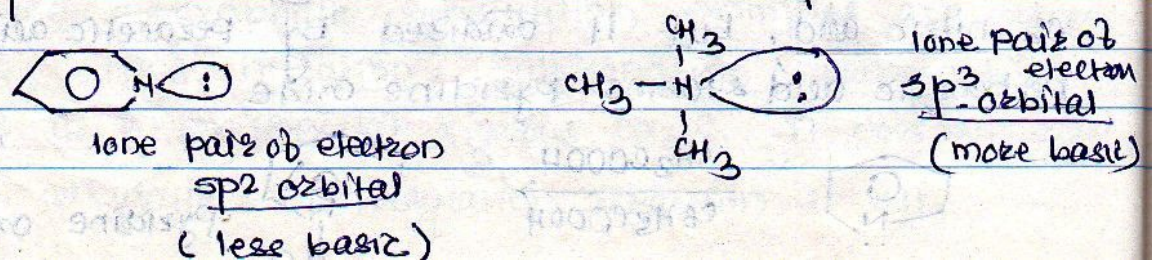 N :
lone pair of electron
sp2 orbital
(less basic)
CH3
CH3 – N :
CH3
lone pair of
electron
sp3 - orbital
(more basic)